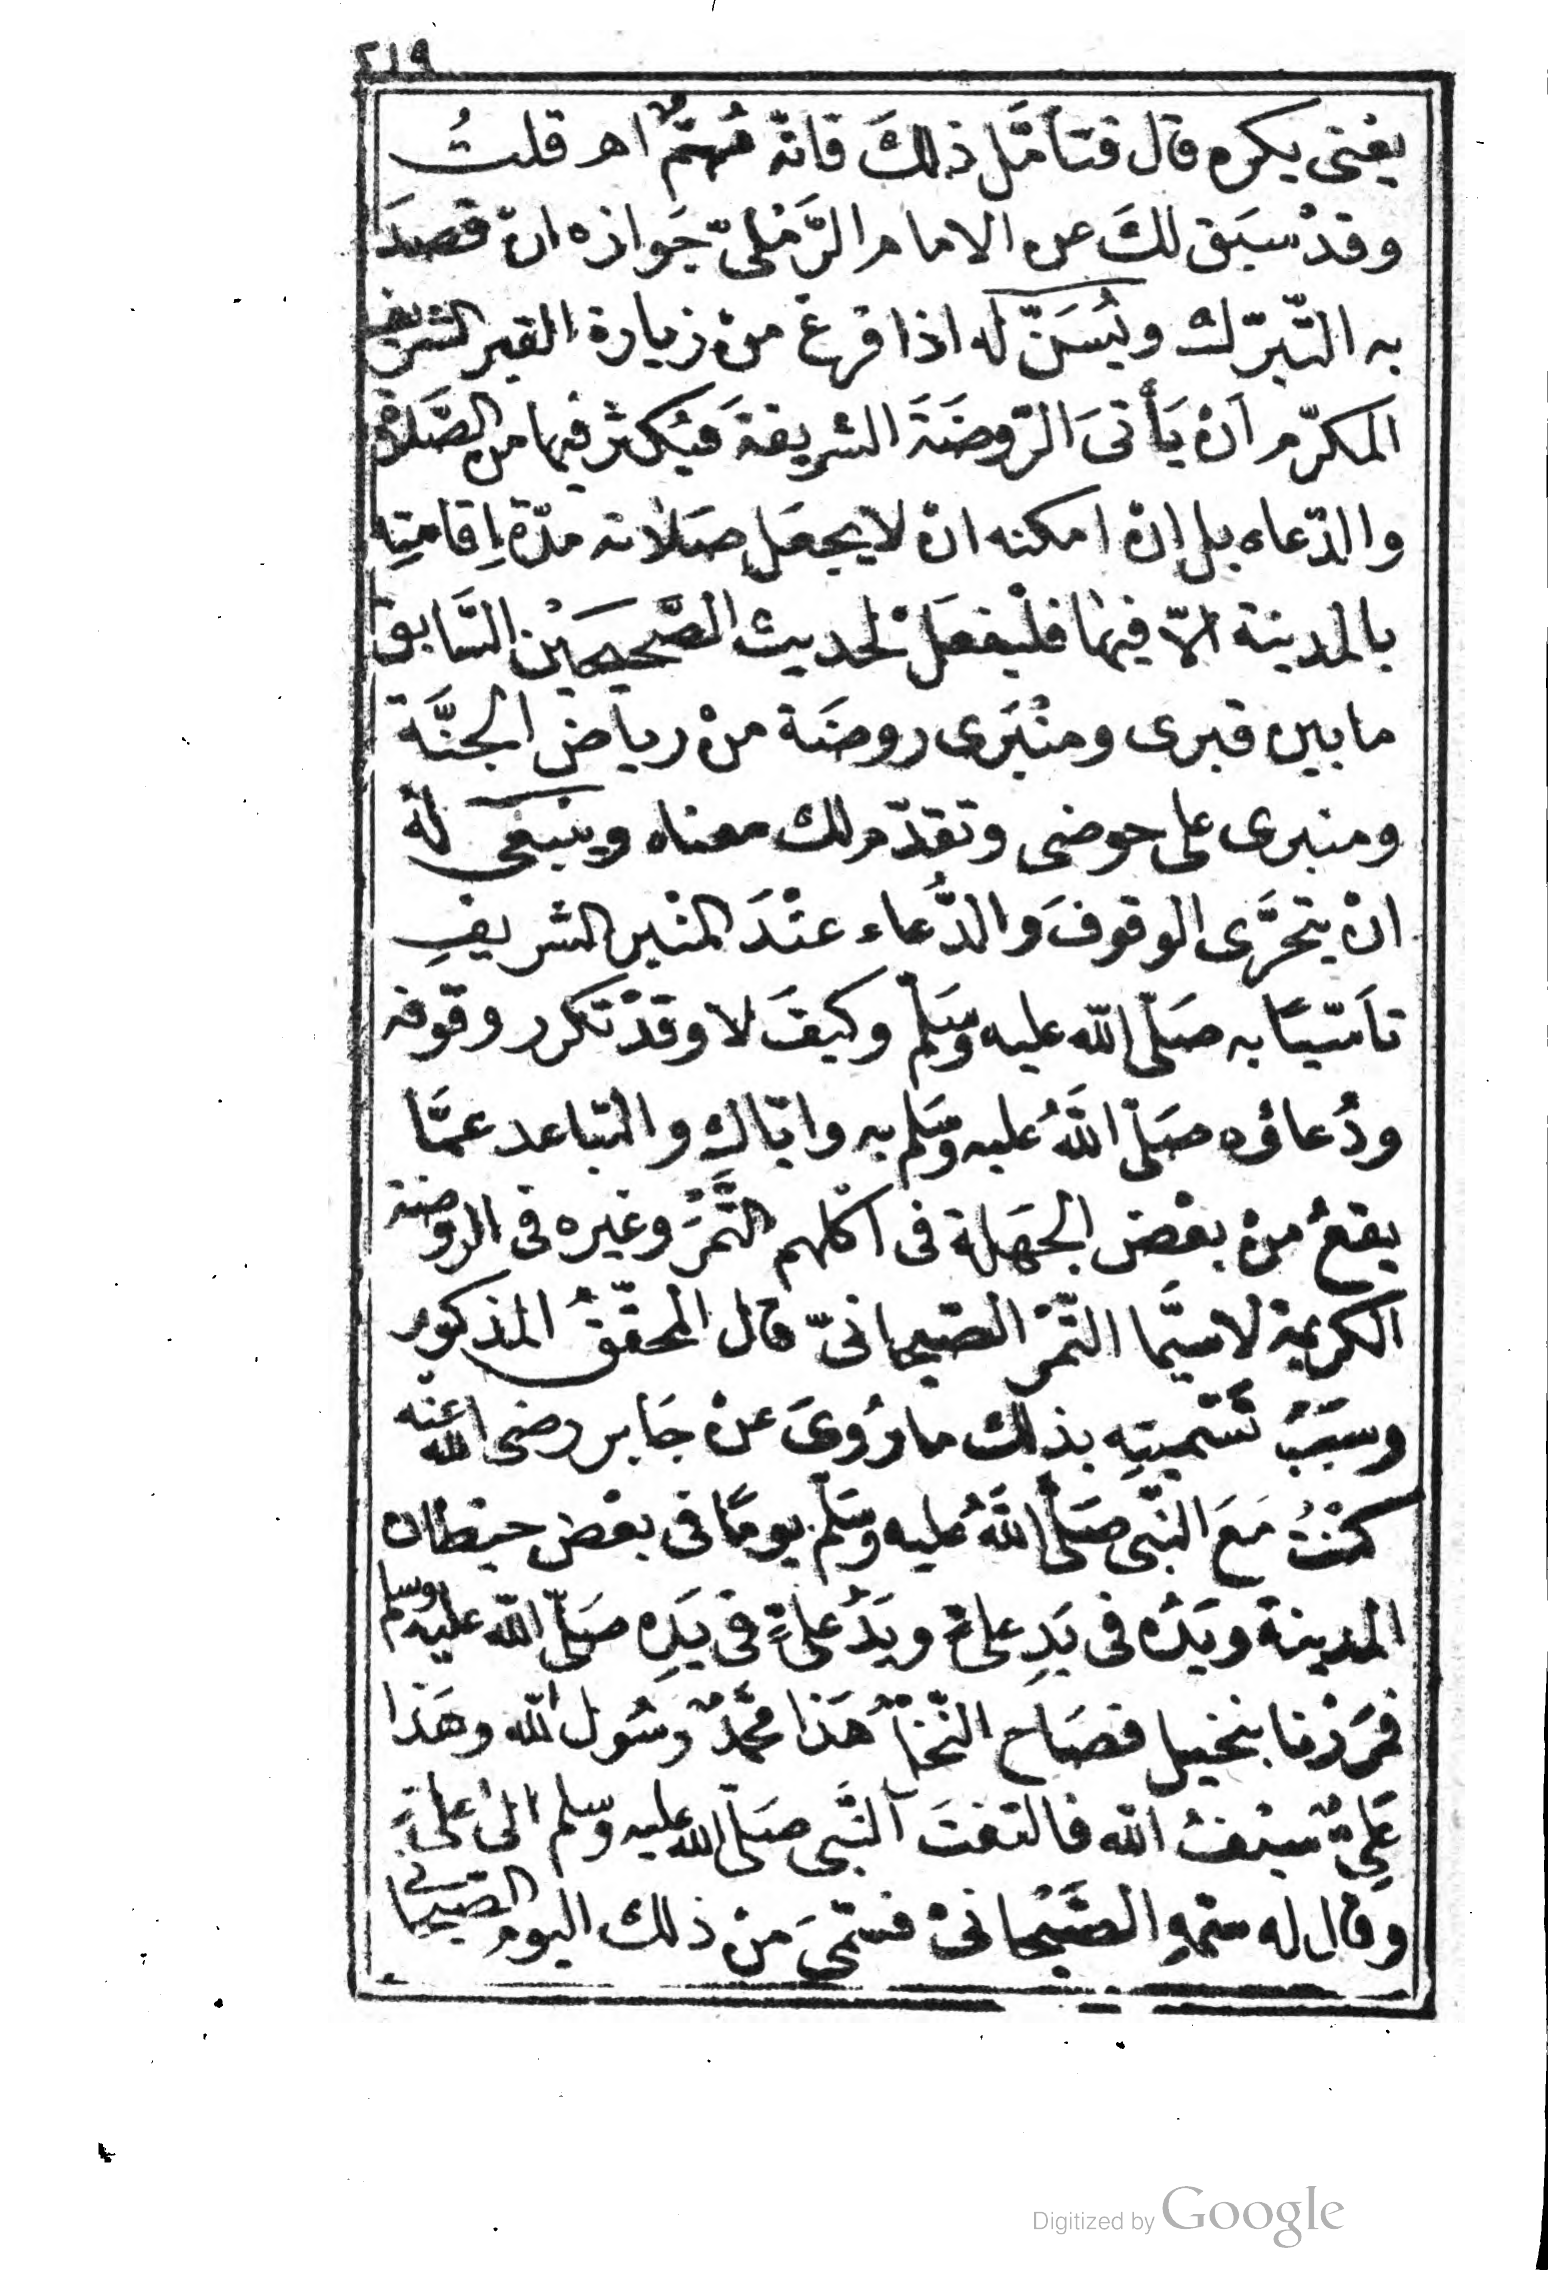 ٢١٩
يعْنى يكره قال فتأمَّل ذلكَ فانّه مُهِمٌّ اهـ قلتُ
وقدْ سبَق لكَ عن الامام الرَّمْلىّ جَوازه انْ قصدَ
به التّبرّك ويُسَنّ له اذا فرغ منْ زيارة القبر الشريف
المكرّم اَنْ يَأتىَ الرّوضَةَ الشريفةَ فيُكثر فيها من الصَّلاة
والدّعاء بل انْ امكنه انْ لا يجعَل صَلاته مدّة اِقامتِه
بالمدينة الاّ فيها فلْيفعَلْ لحديث الصَّحيحيْن السَّابق
ما بين قبرى ومنْبَرى روضَة منْ رياض الجنَّة
ومنبرى على حوضى وتقدّم لك معناه وينبغى له
انْ يتحرَّى الوقوفَ والدُّعاء عنْدَ المنْبر الشريفِ
تأسّيًا به صَلّى الله عليه وسَلّم وكيفَ لا وقدْ تكرر وقوفه
ودُعاؤه صَلّى اللهُ عليه وسَلم به وايّاك والتباعد عمَّا
يقعُ منْ بعْض الجهَلة فى اكلهم التَّمْرَ وغيره فى الروضة
الكريمة لاسيَّما التّمْر الصّيحانىّ قال المحقّقُ المذكور
وسبَبُ تَسْميتِه بذلك ما رُوىَ عنْ جَابر رضى الله عنْه
كنْتُ مَعَ النّبى صَلّى اللهُ عليه وسَلّم يومًا فى بعْض حيطان
المدينة ويَدُه فى يَدِ علىّ ويَدُ علىٍّ فى يَدِه صَلّى الله عليه وسلم
فمَرَرْنا بنخيل فصَاح النّخْلُ هَذا محَمَّدٌ رسُول الله وهَذا
عَلىٌّ سيْفُ الله فالتفتَ النَّبى صَلّى الله عليه وسلم الىٰ علىٍّ
وقال له سمّهِ الصَّيْحانىْ فسمّىَ منْ ذلك اليوم الصّيحانى
Digitized by Google